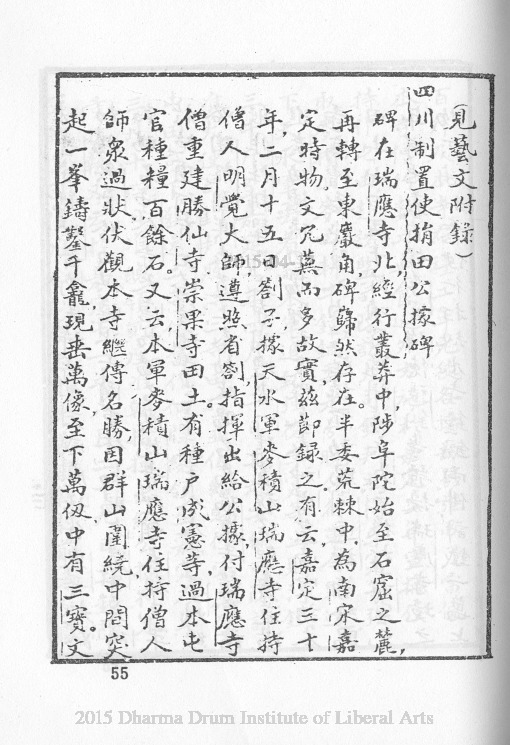 (見藝文附錄)
四川制置使捐田公據碑
碑在瑞應寺北,經行叢莽中,陟阜陀始至石窟之麓,
再轉至東巖角,碑巋然存在。半委荒棘中,為南宋嘉
定時物,文冗蕪而多故實,茲節錄之。有云,嘉定三十
年,二月十五日劄子,據天水軍麥積山瑞應寺住持
僧人明覺大師,遵照省劄指揮出給公據,付瑞應寺
僧重建勝仙寺,崇果寺田土。有種戶成憲等,過本屯
官種糧百餘石。又云,本軍麥積山瑞應寺住持僧人
師眾過狀,伏觀本寺繼傳名勝,因群山圍繞,中間突
起一峯,鑄鑿千龕,現垂萬像,至下萬仭,中有三寶。文
55
15-04-
2015 Dharma Drum Institute of Liberal Arts